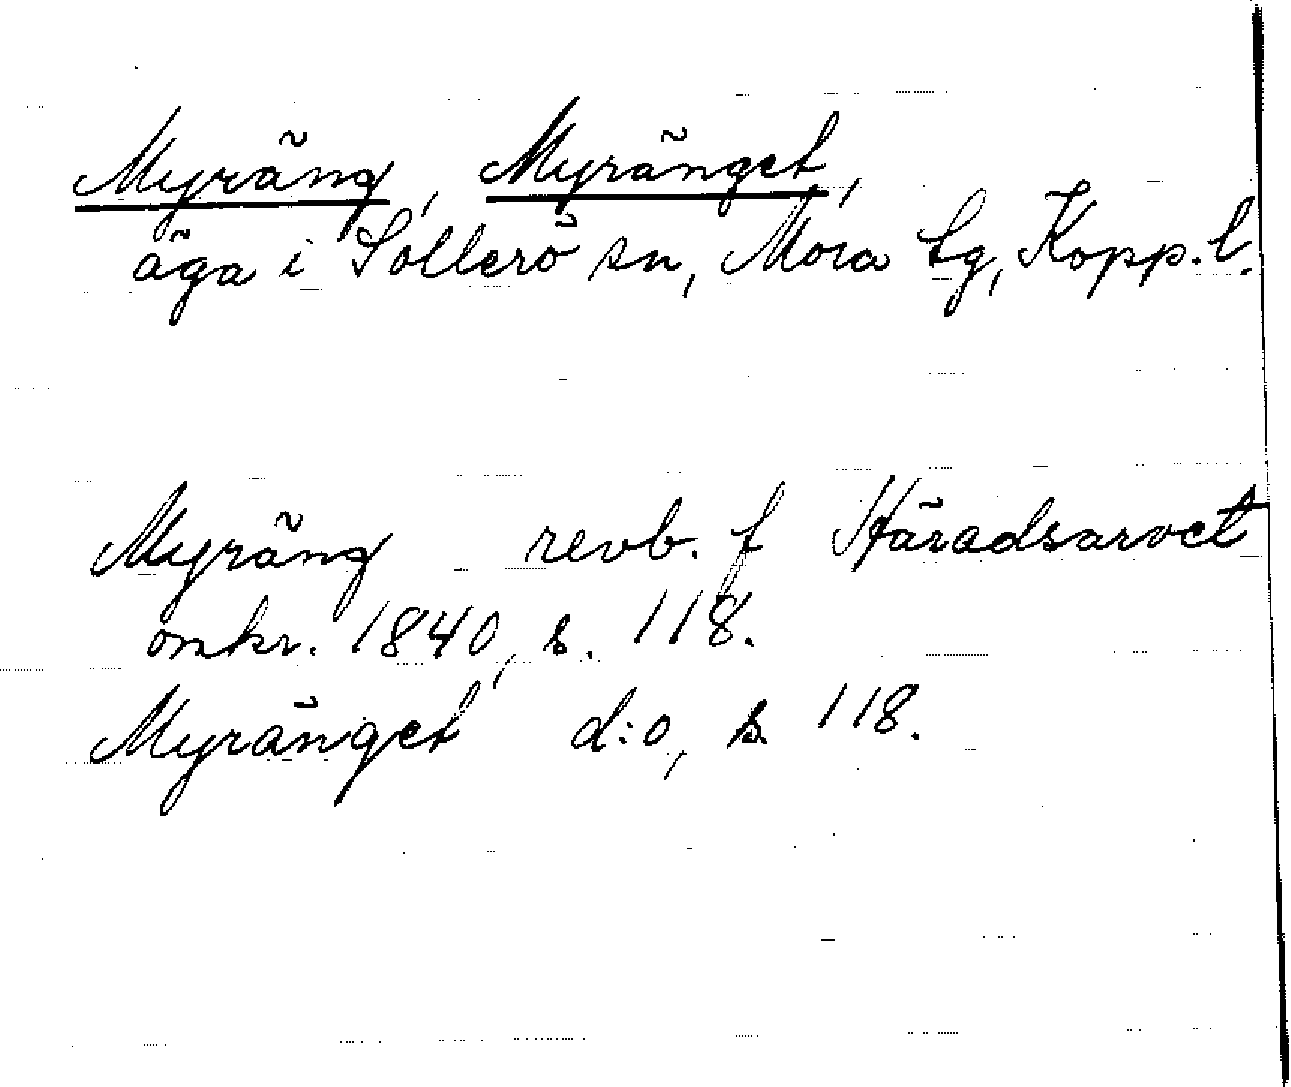 Myräng, Myränget,
äga i Sollerö sn, Mora tg, Kopp. l.
Myräng revb. f Häradsarvet
omkr. 1840, s. 118.
Myränget d:o, s. 118.